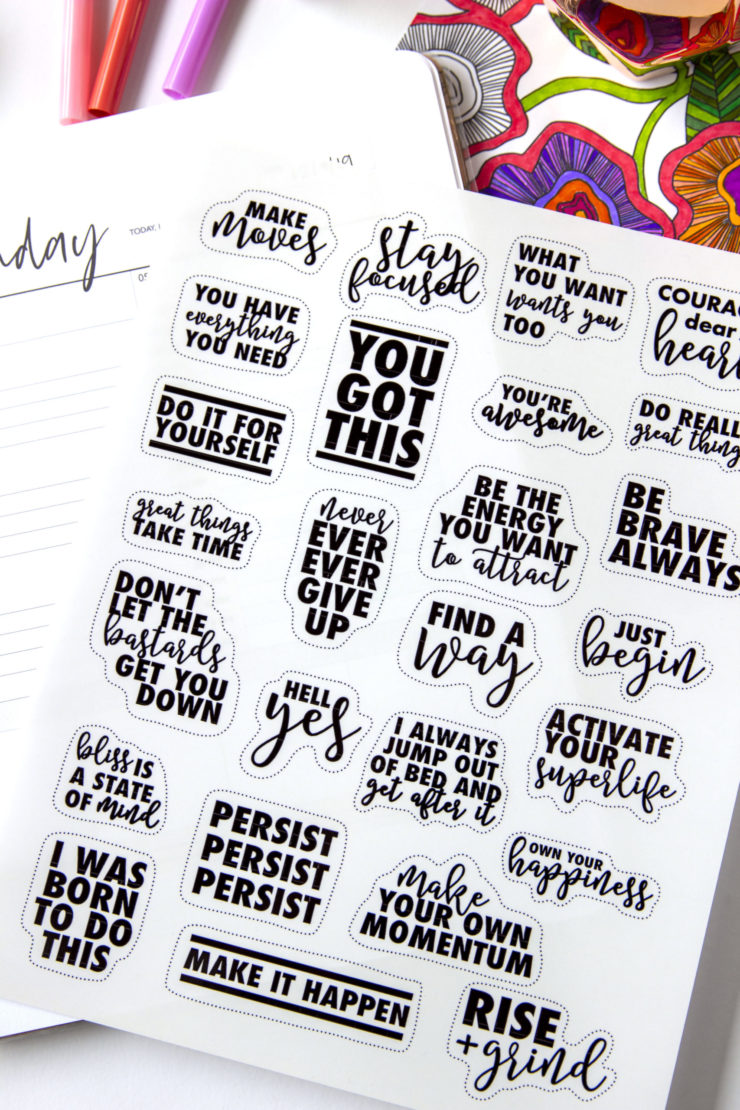 TODAY, I
MAKE
moves
stay
focused
WHAT
YOU WANT
wants you
TOO
dear
YOU HAVE
everything
YOU NEED
YOU
GOT
THIS
YOU'RE
awesome
DO
great
DO IT FOR
YOURSELF
great things
TAKE TIME
never
EVER
EVER
GIVE
UP
BE THE
ENERGY
YOU WANT
to attract
BE
BRAVE
ALWAYS
DON'T
LET THE
bastards
GET YOU
DOWN
FIND A
way
JUST
begin
HELL
yes
I ALWAYS
JUMP OUT
OF BED AND
get after it
ACTIVATE
YOUR
superlife
bliss IS
A STATE
OF mind
PERSIST
PERSIST
PERSIST
OWN YOUR
happiness
I WAS
BORN
TO DO
THIS
make
YOUR OWN
MOMENTUM
MAKE IT HAPPEN
RISE
+grind